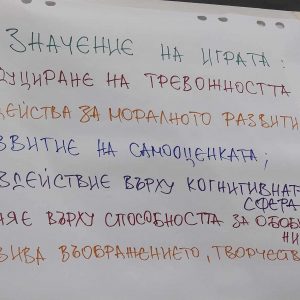 ЗНАЧЕНИЕ НА ИГРАТА:
ДУЦИРАНЕ НА ТРЕВОЖНОСТТА
ДЕЙСТВА ЗА МОРАЛНОТО РАЗВИТИ
ЗВИТИЕ НА САМООЦЕНКАТА;
ЗДЕЙСТВИЕ ВЪРХУ КОГНИТИВНАТ
СФЕРА
ЯЕ ВЪРХУ СПОСОБНОСТТА ЗА ОБОБ
НИ
ВИВА ВЪОБРАЖЕНИЕТО, ТВОРЧЕСТВ